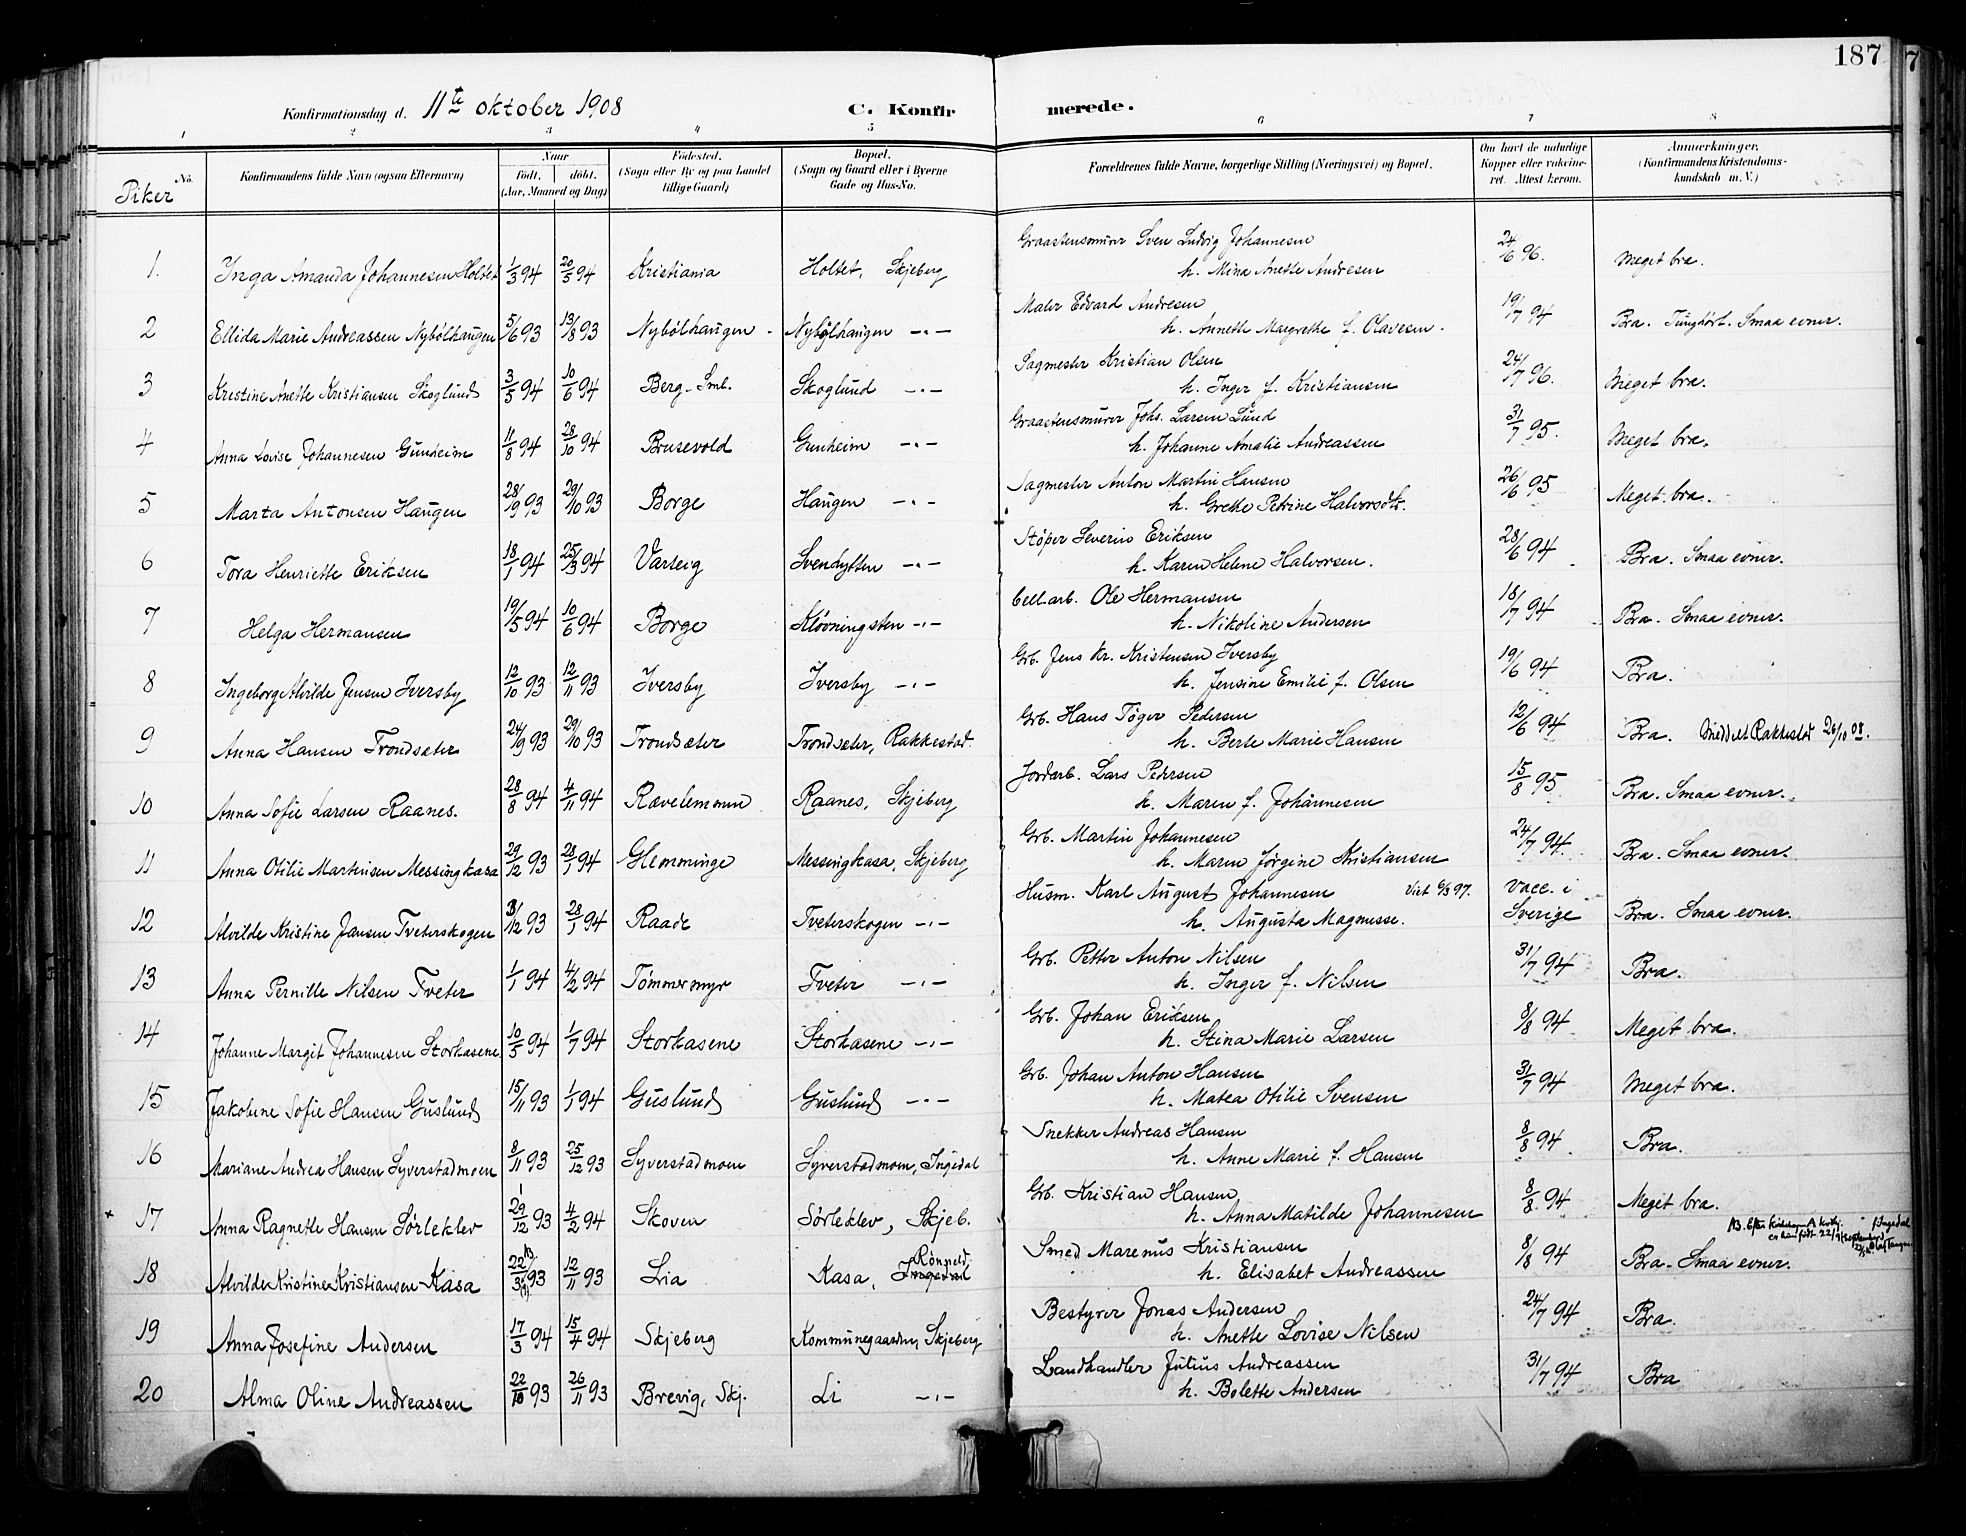 187
Konfirmationsdag d. 11te oktober 1908 C. Konfirmerede.
1 2 3 4 5 6 7 8
Piker No.
Konfirmandens fulde Navn (ogsaa Efternavn)
Naar
født. døbt.
(Aar, Maaned og Dag)
Fødested.
(Sogn eller By og paa Landet tillige Gaard)
Bopæl.
(Sogn og Gaard eller i Byerne Gade og Hus-No.
Forældrenes fulde Navne, borgerlige Stilling (Næringsvei) og Bopæl.
Om havt de naturlige Kopper eller vaccineret. Attest herom.
Anmærkninger.
(Konfirmandens Kristendomskundskab m. V.)
1. Inga Amanda Johannesen Holtet 1/3 94 20/5 94 Kristiania Holtet, Skjeberg Graastensmurer Sven Ludvig Johannesen 24/6 96. Meget bra.
h. Mina Anette Andresen
2 Ellida Marie Andreassen Nybølhaugen 5/6 93 13/8 93 Nybølhaugen - Nybølhaugen -"- Maler Edvard Andresen 19/7 94 Bra. Tunghørt. Smaa evner.
h. Annette Margrethe f. Olavesen.
3 Kristine Anette Kristiansen Skoglund 3/5 94 10/6 94 Berg. Sml. Skoglund -"- Sagmester Kristian Olsen 24/7 96. Meget bra.
h. Inger f. Kristiansen
4 Anna Lovise Johannesen Gunheim 11/8 94 28/10 94 Brusevold Gunheim -"- Graastensmurer Johs. Larsen Lund 31/7 95. Meget bra.
h. Johanne Amalie Andreassen
5 Marta Antonsen Haugen 28/9 93 29/10 93 Borge Haugen -"- Sagmester Anton Martin Hansen 26/6 95 Meget bra.
h. Grethe Petrine Halvorsdtr.
6 Tora Henriette Eriksen 18/1 94 25/3 94 Varteig Svendytten -"- Støper Severin Eriksen 28/6 94 Bra. Smaa evner.
h. Karen Helene Halvorsen.
7 Helga Hermansen 19/5 94 10/6 94 Borge Kløvningsten -"- Cell.arb. Ole Hermansen 18/7 94 Bra. Smaa evner.
h. Nikoline Andersen
8 Ingeborg Alvilde Jensen Iversby 12/10 93 12/11 93 Iversby Iversby -"- Grb. Jens Kr. Kristensen Iversby 19/6 94 Bra.
h. Jensine Emilie f. Olsen
9 Anna Hansen Trondsæter 24/9 93 29/10 93 Trondsæter Trondsæter, Rakkestad Grb. Hans Tøger Pedersen 12/6 94 Bra. Meddelt Rakkestad 26/10 08.
h. Berte Marie Hansen
10 Anna Sofie Larsen Raanes. 28/8 94 4/11 94 Rævelemmen Raanes, Skjeberg Jordarb. Lars Pedersen 15/8 95 Bra. Smaa evner.
h. Maren f. Johannesen
11 Anna Otilie Martinsen Messingkasa 29/12 93 28/1 94 Glemminge Messingkasa, Skjeberg Grb. Martin Johannesen 24/7 94. Bra. Smaa evner.
h. Maren Jørgine Kristiansen
12 Alvilde Kristine Jansen Tveterskogen 31/12 93 28/1 94 Raade Tveterskogen -"- Husm. Karl August Johannesen Viet 6/3 97. Vacc. i Sverige Bra. Smaa evner.
h. Augusta Magnusse.
13 Anna Pernille Nilsen Tveter 1/1 94 4/2 94 Tømmermyr Tveter -"- Grb. Petter Anton Nilsen 31/7 94 Bra.
h. Inger f. Nilsen
14 Johanne Margit Johannesen Storkasene 10/5 94 1/7 94 Storkasene Storkasene -"- Grb. Johan Eriksen 8/8 94 Meget bra.
h. Stina Marie Larsen
15 Jakobine Sofie Hansen Guslund 15/11 93 1/1 94 Guslund Guslund -"- Grb. Johan Anton Hansen 31/7 94 Meget bra.
h. Matea Otilie Svensen
16 Mariane Andrea Hansen Syverstadmoen 8/11 93 25/12 93 Syverstadmoen Syverstadmoen, Ingedal Snekker Andreas Hansen 8/8 94 Bra.
h. Anne Marie f. Hansen
17 Anna Ragnette Hansen Sørleklev 29/12 93 4/2 94 Skoven Sørleklev, Skjeb. Grb. Kristian Hansen 8/8 94 Meget bra.
h. Anna Matilde Johannesen
18 Alvilde Kristine Kristiansen Kasa 22/3 93 12/11 93 Lia Kasa, Rønneld Ingedal Smed Marenus Kristiansen 8/8 94 Bra. Smaa evner.
h. Elisabet Andreassen
19 Anna Josefine Andersen 17/3 94 15/4 94 Skjeberg Kommunegaarden, Skjeberg Bestyrer Jonas Andersen 24/7 94 Bra.
h. Anette Lovise Nilsen
20 Alma Oline Andreassen 22/10 93 26/11 93 Brevig, Skj. Li -"- Landhandler Julius Andreassen 31/7 94 Bra
h. Bolette Andersen